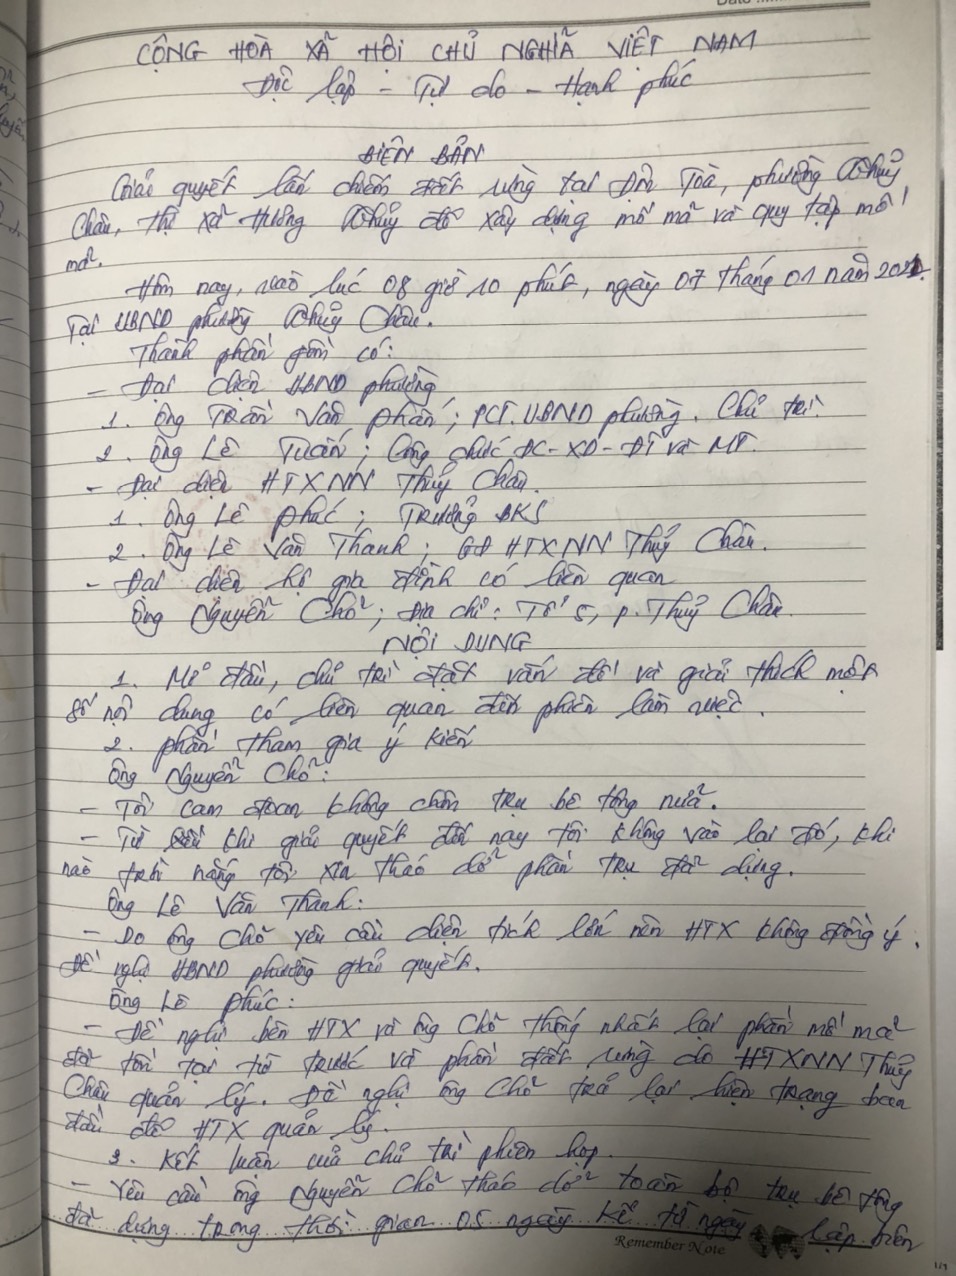 CỘNG HOÀ XÃ HỘI CHỦ NGHĨA VIỆT NAM
Độc lập - Tự do - Hạnh phúc
BIÊN BẢN
Giải quyết lấn chiếm đất rừng tại Độn Toà, phường Thuỷ
Châu, thị xã Hương Thuỷ để xây dựng mồ mã và quy tập mồ
mả.
Hôm nay, vào lúc 08 giờ 10 phút, ngày 07 tháng 01 năm
Tại UBND phường Thuỷ Châu.
Thành phần gồm có:
- Đại diện UBND phường
1. Ông Trần Văn Phấn; PCT. UBND phường. Chủ trì
2. Ông Lê Tuấn; Công chức ĐC-XD-ĐT và MT.
- Đại diện HTXNN Thuỷ Châu.
1. Ông Lê Phúc; Trưởng BKS
2. Ông Lê Văn Thanh; GĐ HTXNN Thuỷ Châu.
- Đại diện hộ gia đình có liên quan
Ông Nguyễn Chổ; Địa chỉ: Tổ 5, p. Thuỷ Châu.
NỘI DUNG
1. Mở đầu, chủ trì đặt vấn đề và giải thích một
số nội dung có liên quan đến phiên làm việc.
2. Phần tham gia ý kiến
Ông Nguyễn Chổ:
- Tôi cam đoan không chôn trụ bê tông nữa.
- Từ khi giải quyết đến nay tôi không vào lại đó, khi
nào trời nắng tôi xin tháo dỡ phần trụ đã dựng.
Ông Lê Văn Thanh:
- Do ông Chổ yêu cầu diện tích lớn nên HTX không đồng ý.
Đề nghị UBND phường giải quyết.
Ông Lê Phúc:
- Đề nghị bên HTX và ông Chổ thống nhất lại phần mồ mả
đã tồn tại từ trước và phần đất rừng do HTXNN Thuỷ
Châu quản lý. Đề nghị ông Chổ trả lại hiện trạng ban
đầu để HTX quản lý.
3. Kết luận của chủ trì phiên họp.
- Yêu cầu ông Nguyễn Chổ tháo dỡ toàn bộ trụ bê tông
đã dựng trong thời gian 05 ngày kể từ ngày lập biên
Remember Note